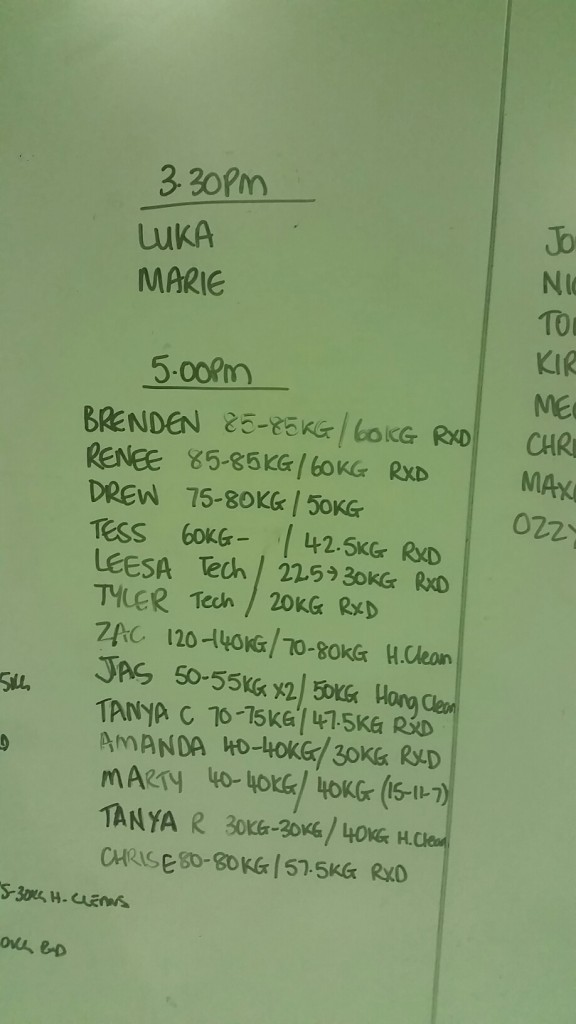 3.30PM
LUKA
MARIE
5.00PM
BRENDEN 85-85KG/60KG RXD
RENEE 85-85KG/60KG RXD
DREW 75-80KG/50KG
TESS 60KG- / 42.5KG RXD
LEESA Tech / 22.5→30KG RXD
TYLER Tech / 20KG RXD
ZAC 120-140KG/70-80KG H.Clean
JAS 50-55KG x2/50KG Hang Clean
TANYA C 70-75KG/47.5KG RXD
AMANDA 40-40KG/30KG RXD
MARTY 40-40KG/40KG (15-11-7)
TANYA R 30KG-30KG/40KG H.Clean
CHRIS E 80-80KG/57.5KG RXD
5-30KG H-CLEANS
JO
NIC
TO
KIR
ME
CHRI
MAX
OZZY